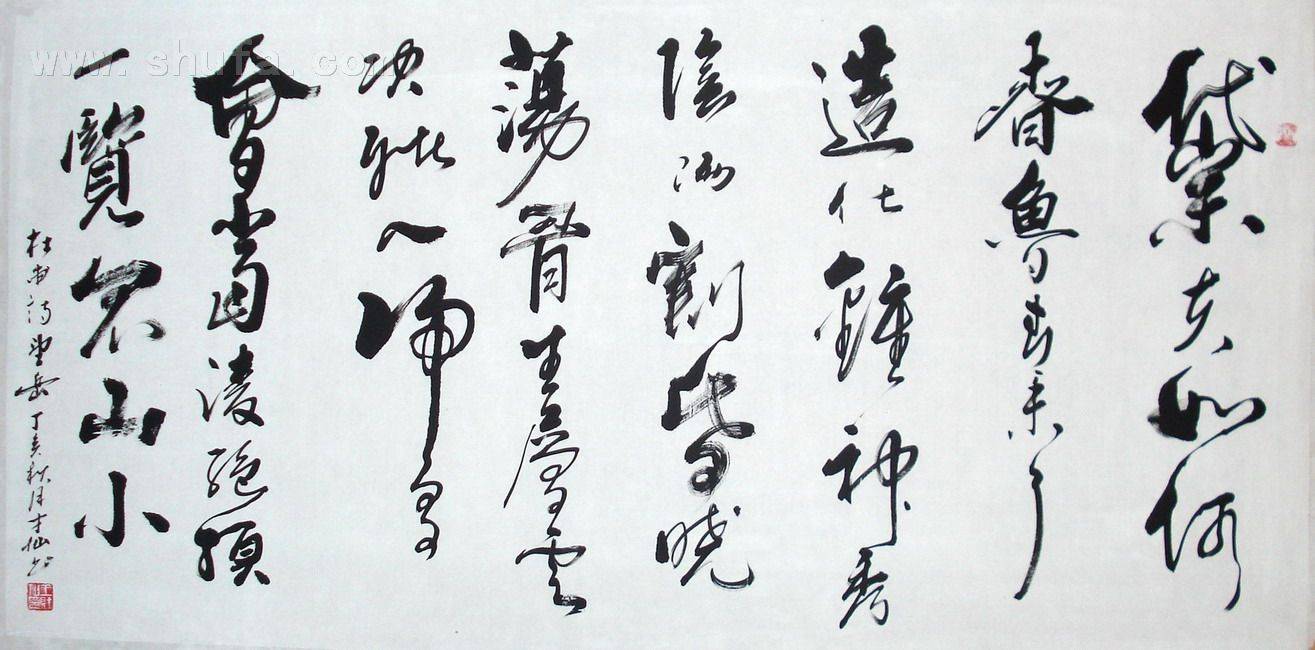 岱宗夫如何
齊魯青未了
造化鍾神秀
陰陽割昏曉
蕩胷生層雲
決眦入歸鳥
會當凌絕頂
一覽衆山小
杜甫詩望岳 丁亥秋月才仙書
www.shufa.com